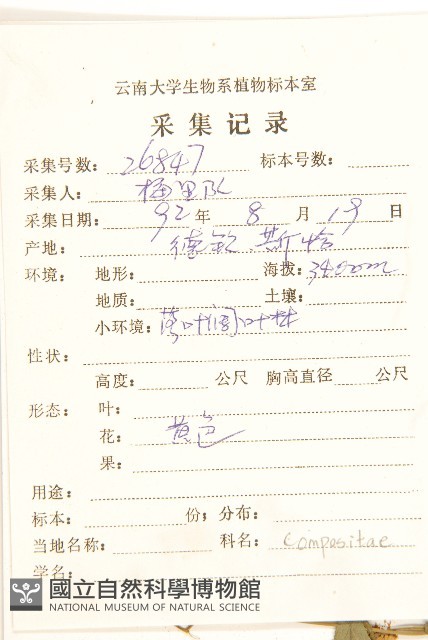 云南大学生物系植物标本室
采集记录
采集号数: 26847 标本号数:
采集人: 横里队
采集日期: 92 年 8 月 19 日
产地: 德钦、斯恰
环境: 地形: 海拔: 3400m
地质: 土壤:
小环境: 叶阔叶林
性状:
高度: 公尺 胸高直径 公尺
形态: 叶:
花: 黄色
果:
用途:
标本: 份; 分布:
当地名称: 科名: Compositae
学名:
國立自然科學博物館
NATIONAL MUSEUM OF NATURAL SCIENCE